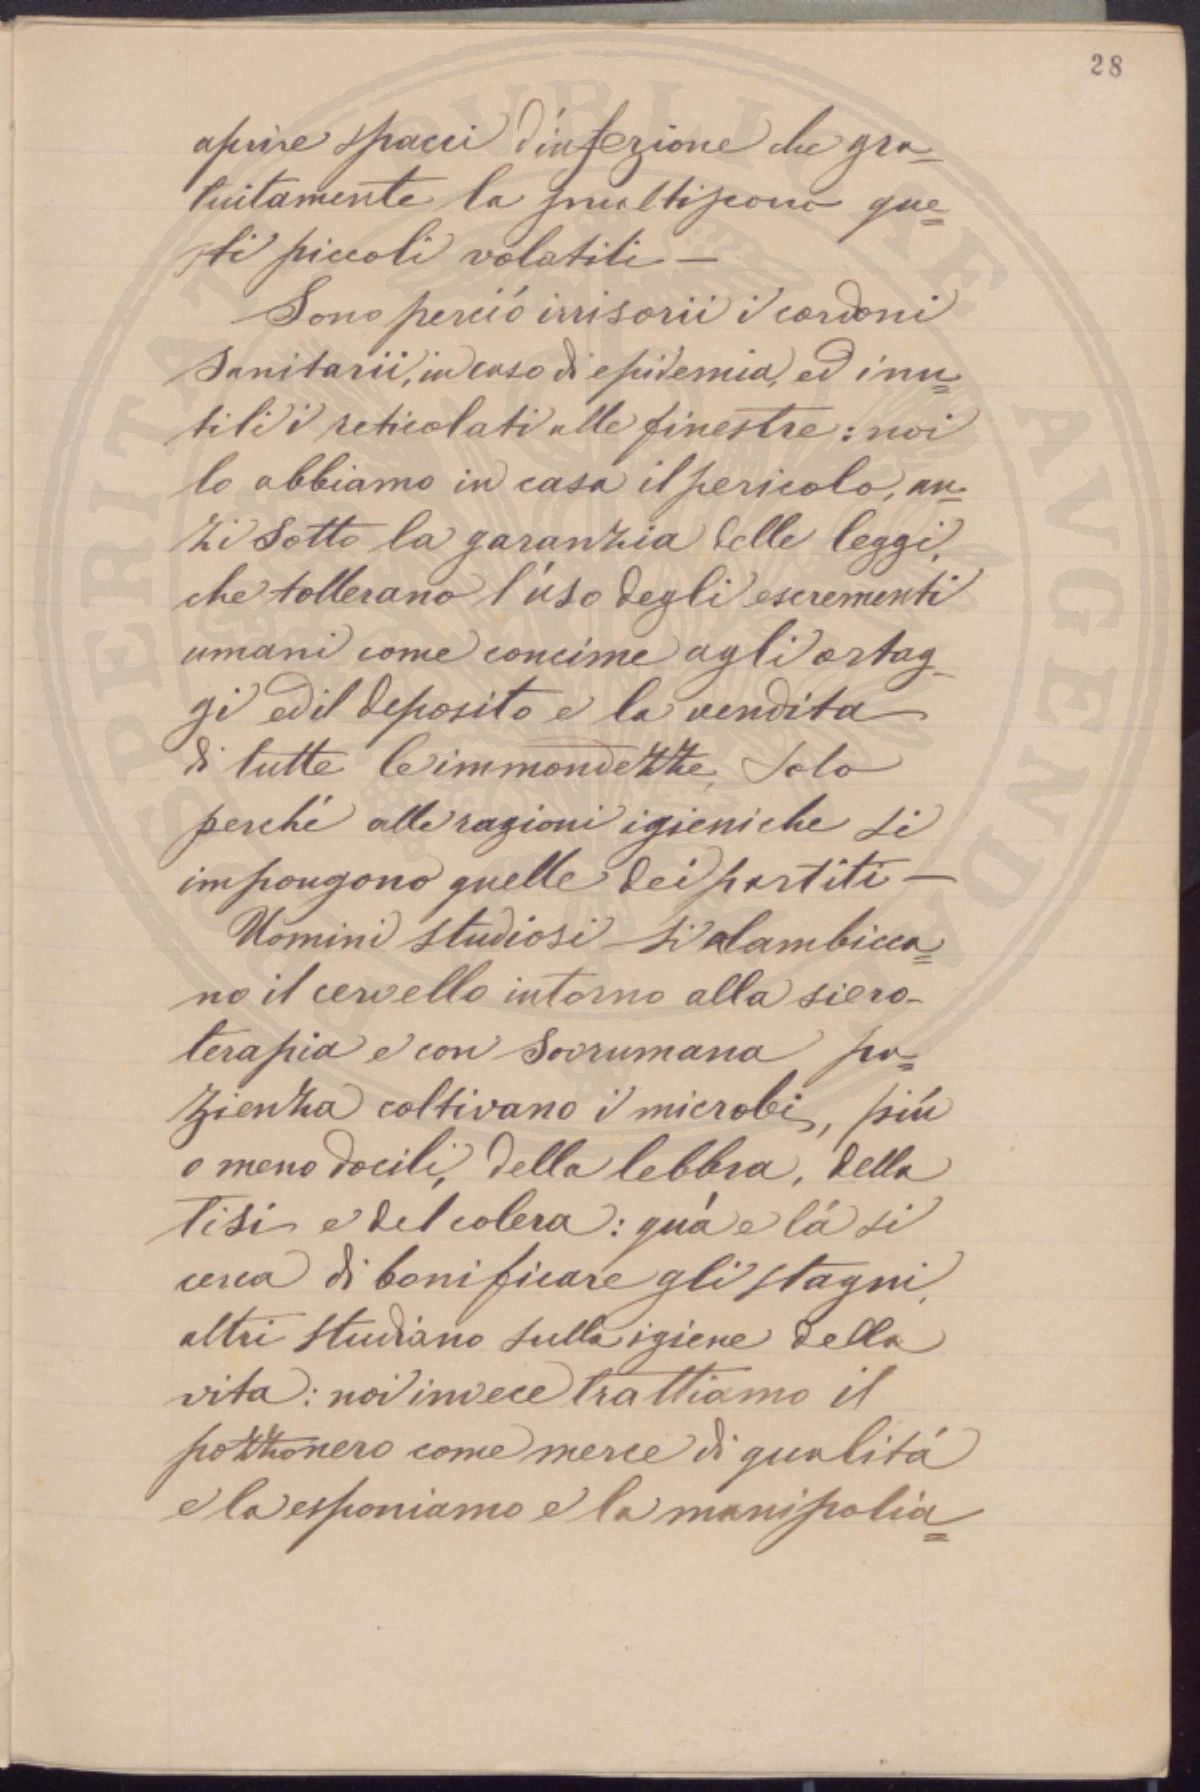 28
aprire spacci d'infezione che gra-
tuitamente la smaltiscono que=
sti piccoli volatili —
Sono perció irrisorii i cordoni
Sanitarii, in caso di epidemia, ed inu=
tili i reticolati alle finestre: noi
lo abbiamo in casa il pericolo, an=
zi sotto la garanzia delle leggi,
che tollerano l'uso degli escrementi
umani come concime agli ortag-
gi ed il deposito e la vendita
di tutte le immondezze, solo
perché alle ragioni igieniche si
impongono quelle dei partiti —
Uomini studiosi si alambicca=
no il cervello intorno alla siero-
terapia e con sovrumana pa=
zienza coltivano i microbi, piú
o meno docili, della lebbra, della
tisi e del colera: quá e lá si
cerca di bonificare gli stagni,
altri studiano sulla igiene della
vita: noi invece trattiamo il
pozzonero come merce di qualitá
e la esponiamo e la manipolia=
SPERITATI PUBLICAE AVGENDAE